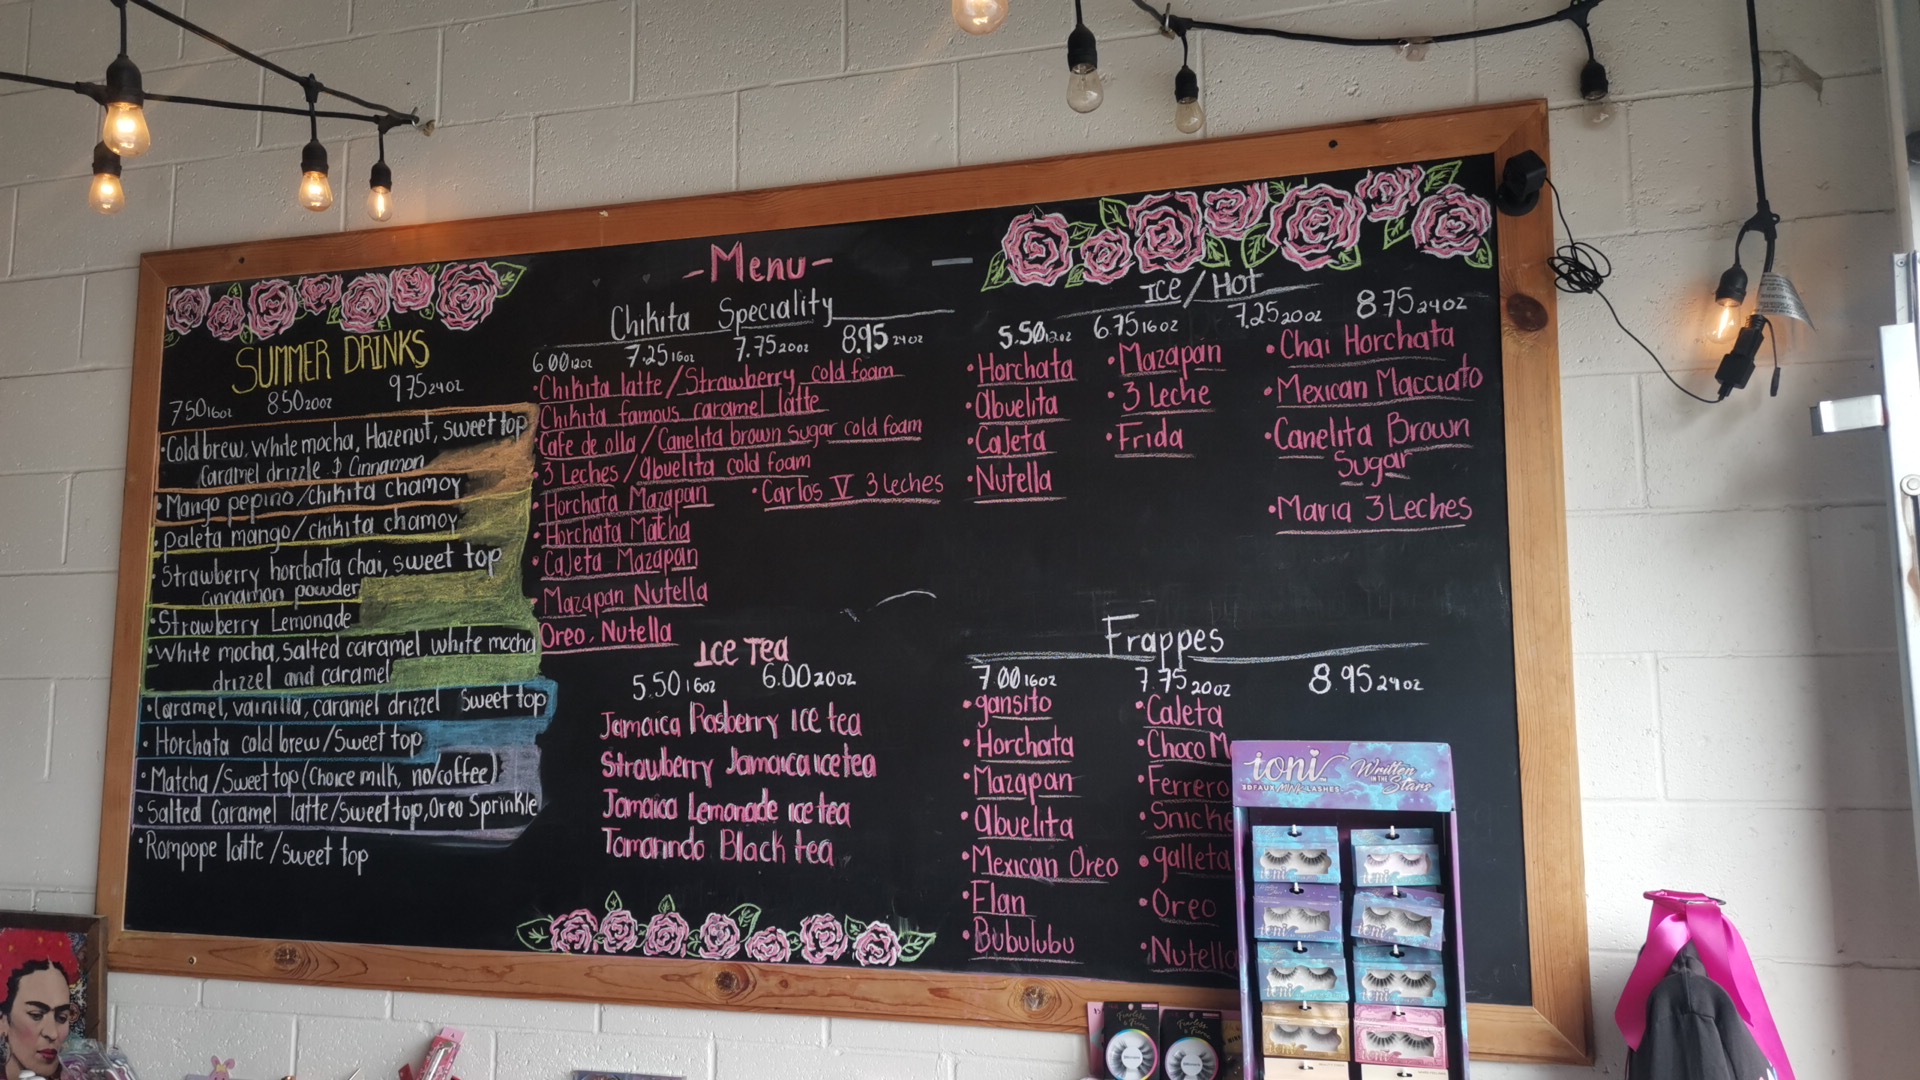 -Menu-
SUMMER DRINKS
7 50 16oz 8 50 20oz 9 75 24oz
•Cold brew, White mocha, Hazenut, sweet top
Caramel drizzle & Cinnamon
•Mango pepino/chikita chamoy
•paleta mango/chikita chamoy
•Strawberry horchata chai, sweet top
cinnamon powder
•Strawberry Lemonade
•White mocha, salted caramel, white mocha
drizzel and caramel
•Caramel, vainilla, caramel drizzel Sweet top
•Horchata cold brew/Sweet top
•Matcha/Sweet top (Choice milk, no/coffee)
•Salted Caramel latte/Sweet top, Oreo Sprinkle
•Rompope latte/sweet top
Chikita Speciality
6.00 12oz 7.25 16oz 7.75 20oz 8.95 24oz
•Chikita latte/Strawberry cold foam
Chikita famous caramel latte
•Cafe de olla/Canelita brown sugar cold foam
3 Leches/abuelita cold foam
•Horchata Mazapan
•Carlos V 3 leches
•Horchata Matcha
•Cajeta Mazapan
Mazapan Nutella
Oreo, Nutella
Ice Tea
5.50 16oz 6.00 20oz
Jamaica Rasberry ice tea
Strawberry Jamaica ice tea
Jamaica Lemonade ice tea
Tamarindo Black tea
Ice/Hot
5.50 12oz 6.75 16oz 7.25 20oz 8 75 24oz
•Horchata
•abuelita
•Cajeta
•Nutella
•Mazapan
•3 Leche
•Frida
•Chai Horchata
•Mexican Macciato
•Canelita Brown
Sugar
•Maria 3 Leches
Frappes
7.00 16oz 7.75 20oz 8.95 24oz
•gansito
•Horchata
•Mazapan
•abuelita
•Mexican Oreo
•Flan
•Bubulubu
•Cajeta
•Choco M
•Ferrero
•Snicke
•galleta
•Oreo
•Nutella
ioni
Written
IN THE
Stars
3D FAUX MINK LASHES